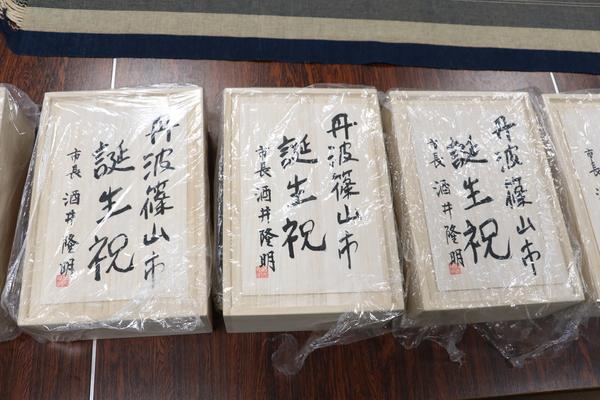 丹波篠山市
誕生祝
市長 酒井隆明
丹波篠山市
誕生祝
市長 酒井隆明
丹波篠山市
誕生祝
市長 酒井隆明